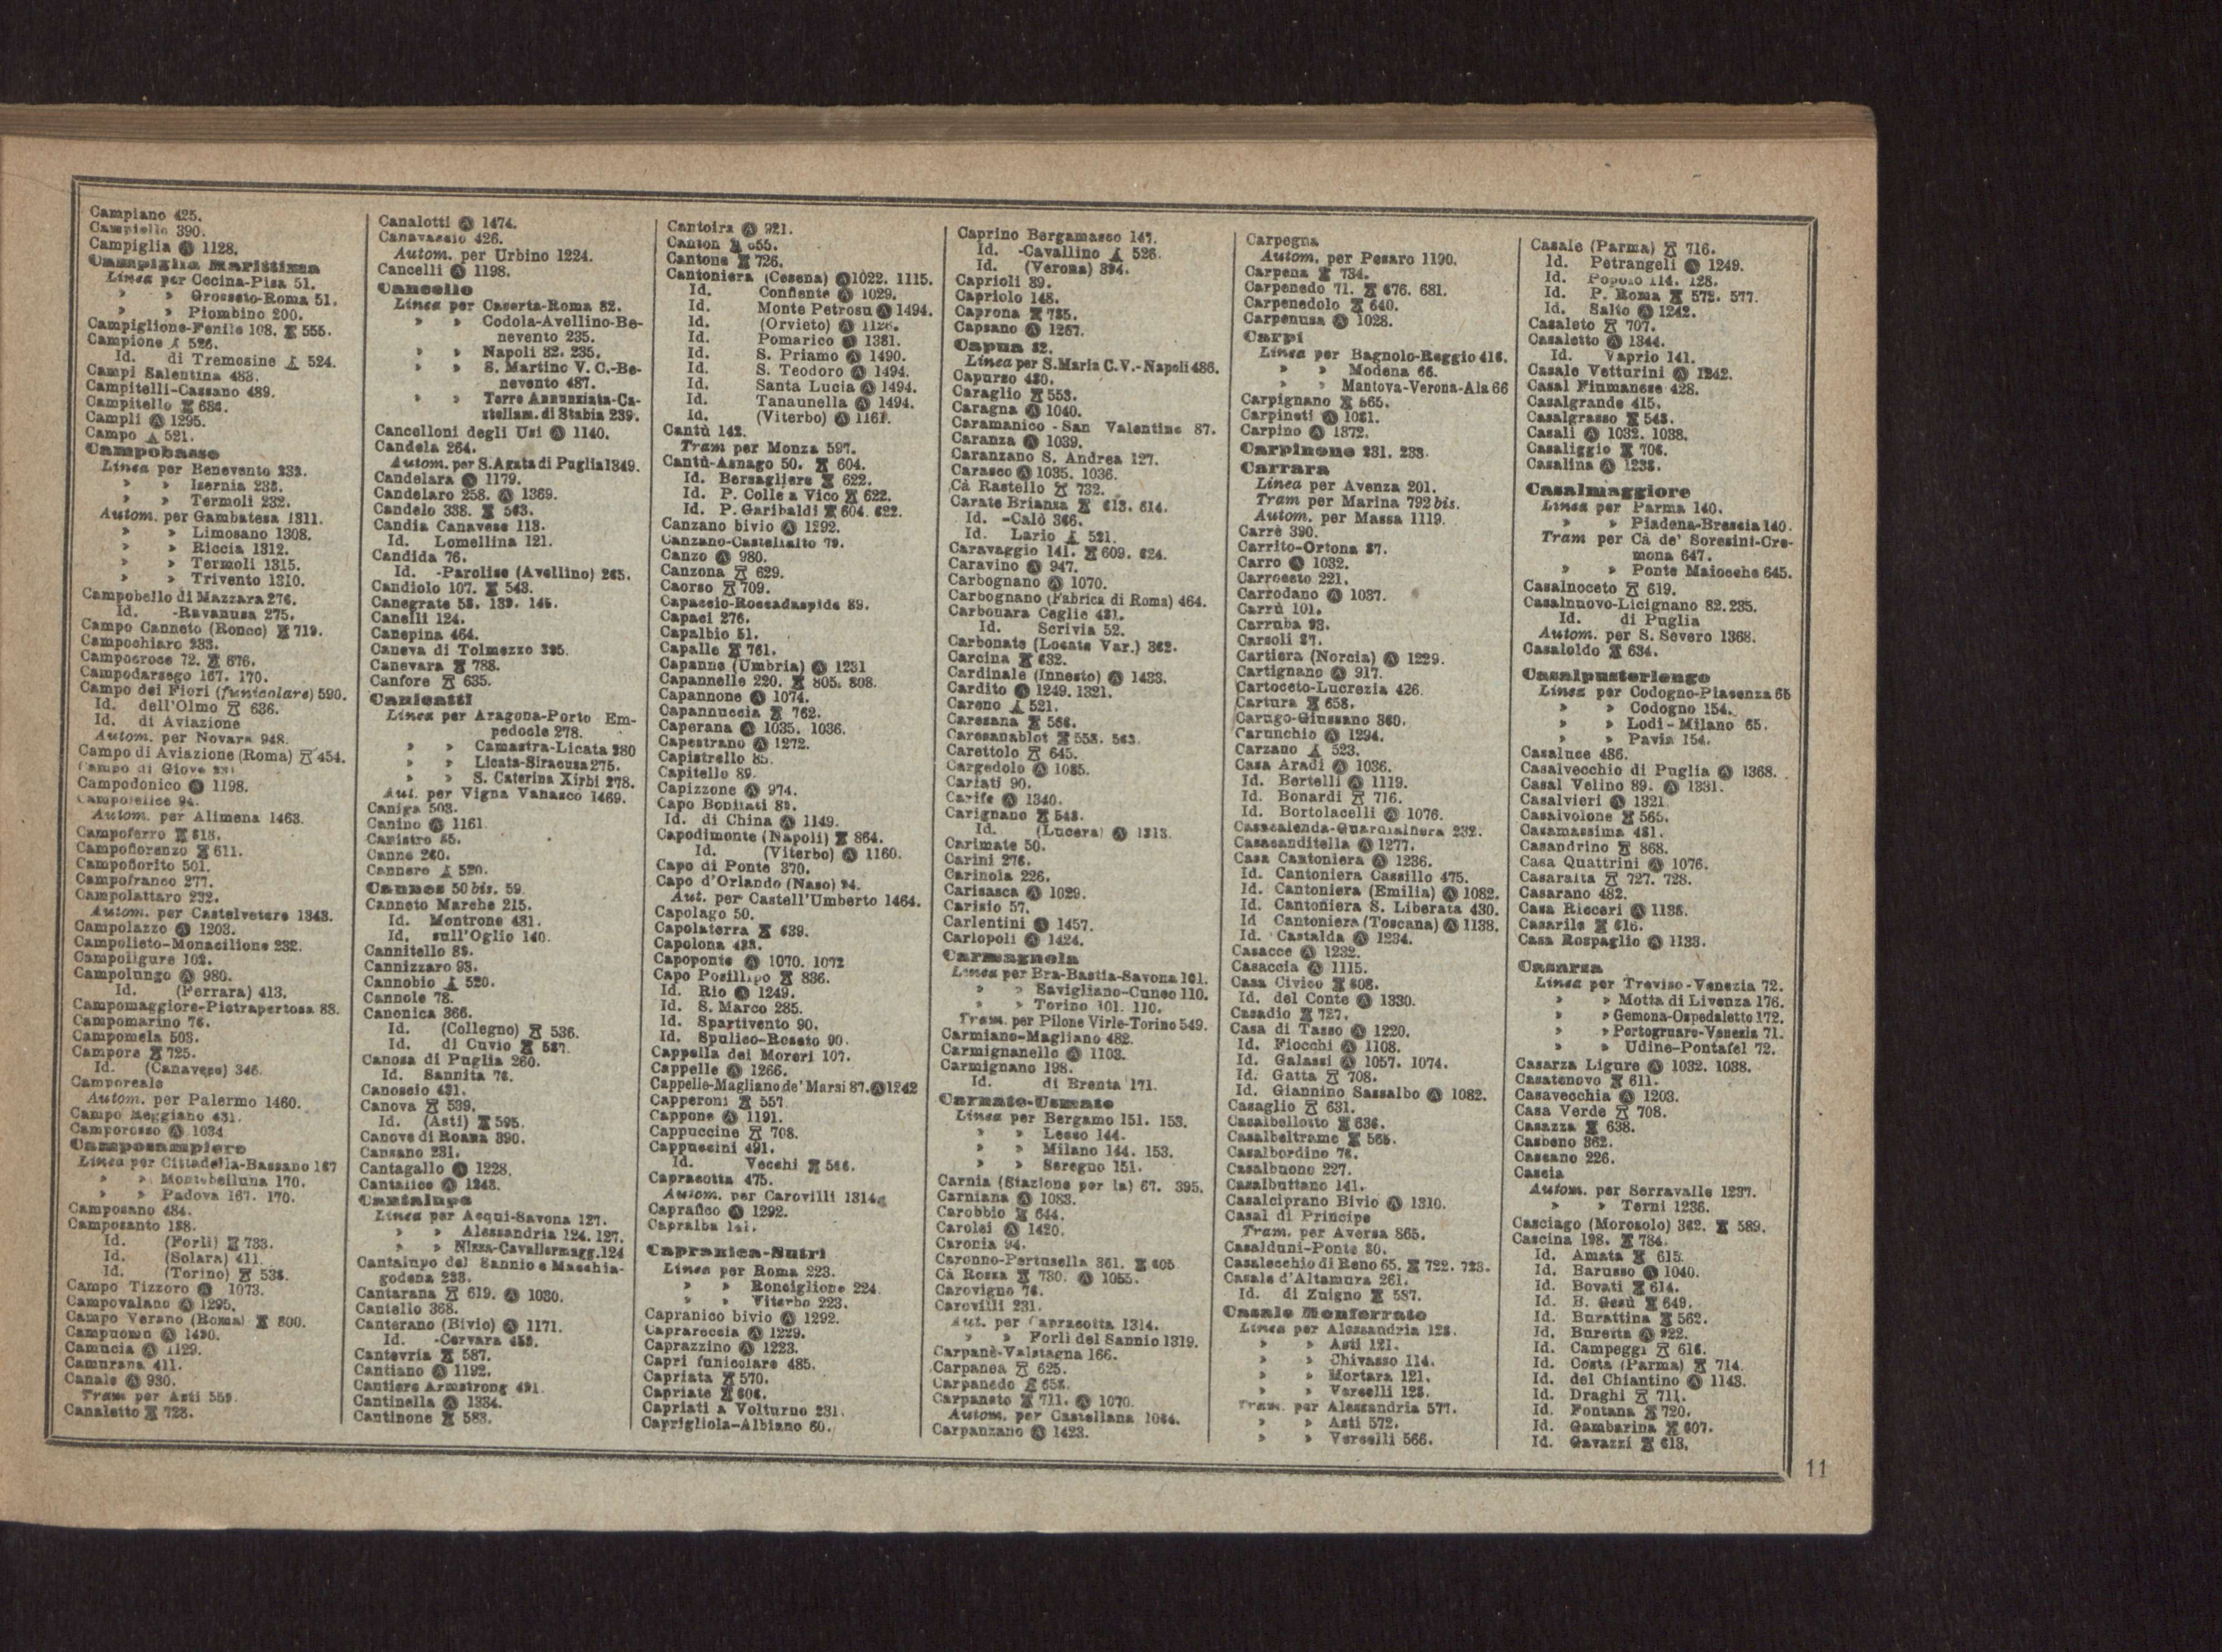 Campiano 425.
Campiello 390.
Campiglia Ⓐ 1128.
Campiglia Marittima
Linea per Cecina-Pisa 51.
» » Grosseto-Roma 51.
» » Piombino 200.
Campiglione-Fenile 108. 555.
Campione 526.
Id. di Tremosine 524.
Campi Salentina 483.
Campitelli-Cassano 489.
Campitello 684.
Campli Ⓐ 1295.
Campo 521.
Campobasso
Linea per Benevento 232.
» » Isernia 233.
» » Termoli 232.
Autom. per Gambatesa 1311.
» » Limosano 1308.
» » Riccia 1312.
» » Termoli 1315.
» » Trivento 1310.
Campobello di Mazzara 276.
Id. -Ravanusa 275.
Campo Canneto (Ronco) 719.
Campochiaro 233.
Campocroce 72. 676.
Campodarsego 167. 170.
Campo dei Fiori (funicolare) 590.
Id. dell'Olmo 636.
Id. di Aviazione
Autom. per Novara 948.
Campo di Aviazione (Roma) 454.
Campo di Giove 231
Campodonico Ⓐ 1198.
Campofelice 94.
Autom. per Alimena 1463.
Campoferro 618.
Campofiorenzo 611.
Campofiorito 501.
Campofranco 277.
Campolattaro 232.
Autom. per Castelvetere 1343.
Campolazzo Ⓐ 1203.
Campolieto-Monacilione 232.
Campoligure 102.
Campolungo Ⓐ 980.
Id. (Ferrara) 413.
Campomaggiore-Pietrapertosa 88.
Campomarino 76.
Campomela 503.
Campore 725.
Id. (Canavese) 346.
Camporeale
Autom. per Palermo 1460.
Campo Reggiano 431.
Camporosso Ⓐ 1034
Camposampiero
Linea per Cittadella-Bassano 167
» » Montebelluna 170.
» » Padova 167. 170.
Camposano 484.
Camposanto 138.
Id. (Forlì) 733.
Id. (Solara) 411.
Id. (Torino) 538.
Campo Tizzoro Ⓐ 1073.
Campovalano Ⓐ 1295.
Campo Verano (Roma) 800.
Campuomo Ⓐ 1430.
Camucia Ⓐ 1129.
Camurana 411.
Canale Ⓐ 930.
Tram per Asti 559.
Canaletto 723.
Canalotti Ⓐ 1474.
Canavaccio 426.
Autom. per Urbino 1224.
Cancelli Ⓐ 1198.
Cancello
Linea per Caserta-Roma 82.
» » Codola-Avellino-Be-
nevento 235.
» » Napoli 82. 235.
» » S. Martino V. C.-Be-
nevento 487.
» » Torre Annunziata-Ca-
stellam. di Stabia 239.
Cancelloni degli Usi Ⓐ 1140.
Candela 264.
Autom. per S. Agata di Puglia 1349.
Candelara Ⓐ 1179.
Candelaro 258. Ⓐ 1369.
Candelo 338. 563.
Candia Canavese 113.
Id. Lomellina 121.
Candida 76.
Id. -Parolise (Avellino) 265.
Candiolo 107. 543.
Canegrate 53. 139. 145.
Canelli 124.
Canepina 464.
Caneva di Tolmezzo 395.
Canevara 788.
Canfore 635.
Canicattì
Linea per Aragona-Porto Em-
pedocle 278.
» » Camastra-Licata 280
» » Licata-Siracusa 275.
» » S. Caterina Xirbi 278.
Aut. per Vigna Vanasco 1469.
Caniga 503.
Canino Ⓐ 1161
Canistro 85.
Canne 260.
Cannero 520.
Cannes 50 bis. 59.
Canneto Marche 215.
Id. Montrone 431.
Id. sull'Oglio 140.
Cannitello 89.
Cannizzaro 93.
Cannobio 520.
Cannole 78.
Canonica 366.
Id. (Collegno) 536.
Id. di Cuvio 587.
Canosa di Puglia 260.
Id. Sannita 76.
Canoscio 431.
Canova 539.
Id. (Asti) 595.
Canove di Roana 390.
Cansano 231.
Cantagallo Ⓐ 1228.
Cantalice Ⓐ 1243.
Cantalupo
Linea per Acqui-Savona 127.
» » Alessandria 124. 127.
» » Nizza-Cavallermagg. 124
Cantalupo del Sannio e Macchia-
godena 233.
Cantarana 619. Ⓐ 1030.
Cantello 368.
Canterano (Bivio) Ⓐ 1171.
Id. -Cervara 458.
Cantevria 587.
Cantiano Ⓐ 1192.
Cantiere Armstrong 491.
Cantinella Ⓐ 1334.
Cantinone 583.
Cantoira Ⓐ 921.
Canton 655.
Cantone 726.
Cantoniera (Cesena) Ⓐ 1022. 1115.
Id. Confiente Ⓐ 1029.
Id. Monte Petrosu Ⓐ 1494.
Id. (Orvieto) Ⓐ 1126.
Id. Pomarico Ⓐ 1381.
Id. S. Priamo Ⓐ 1490.
Id. S. Teodoro Ⓐ 1494.
Id. Santa Lucia Ⓐ 1494.
Id. Tanaunella Ⓐ 1494.
Id. (Viterbo) Ⓐ 1161.
Cantù 142.
Tram per Monza 597.
Cantù-Asnago 50. 604.
Id. Bersagliere 622.
Id. P. Colle a Vico 622.
Id. P. Garibaldi 604. 622.
Canzano bivio Ⓐ 1292.
Canzano-Castellalto 79.
Canzo Ⓐ 980.
Canzona 629.
Caorso 709.
Capaccio-Roccadaspide 89.
Capaci 276.
Capalbio 51.
Capalle 761.
Capanne (Umbria) Ⓐ 1231
Capannelle 220. 805. 808.
Capannone Ⓐ 1074.
Capannuccia 762.
Caperana Ⓐ 1035. 1036.
Capestrano Ⓐ 1272.
Capistrello 85.
Capitello 89.
Capizzone Ⓐ 974.
Capo Bonifati 89.
Id. di China Ⓐ 1149.
Capodimonte (Napoli) 864.
Id. (Viterbo) Ⓐ 1160.
Capo di Ponte 370.
Capo d'Orlando (Naso) 94.
Aut. per Castell'Umberto 1464.
Capolago 50.
Capolaterra 639.
Capolona 433.
Capoponte Ⓐ 1070. 1072
Capo Posillipo 836.
Id. Rio Ⓐ 1249.
Id. S. Marco 285.
Id. Spartivento 90.
Id. Spulico-Roseto 90.
Cappella dei Moreri 107.
Cappelle Ⓐ 1266.
Cappelle-Magliano de' Marsi 87. Ⓐ 1242
Capperoni 557.
Cappone Ⓐ 1191.
Cappuccine 708.
Cappuccini 491.
Id. Vecchi 566.
Capracotta 475.
Autom. per Carovilli 1314.
Caprafico Ⓐ 1292.
Capralba 141.
Capranica-Sutri
Linea per Roma 223.
» » Ronciglione 224.
» » Viterbo 223.
Capranico bivio Ⓐ 1292.
Caprareccia Ⓐ 1229.
Caprazzino Ⓐ 1223.
Capri funicolare 485.
Capriata 570.
Capriate 606.
Capriati a Volturno 231.
Caprigliola-Albiano 60.
Caprino Bergamasco 147.
Id. -Cavallino 526.
Id. (Verona) 394.
Caprioli 89.
Capriolo 148.
Caprona 785.
Capsano Ⓐ 1267.
Capua 82.
Linea per S. Maria C.V.-Napoli 486.
Capurso 430.
Caraglio 553.
Caragna Ⓐ 1040.
Caramanico - San Valentino 87.
Caranza Ⓐ 1039.
Caranzano S. Andrea 127.
Carasco Ⓐ 1035. 1036.
Cà Rastello 732.
Carate Brianza 613. 614.
Id. -Calò 366.
Id. Lario 521.
Caravaggio 141. 609. 624.
Caravino Ⓐ 947.
Carbognano Ⓐ 1070.
Carbognano (Fabrica di Roma) 464.
Carbonara Ceglie 431.
Id. Scrivia 52.
Carbonate (Locate Var.) 362.
Carcina 632.
Cardinale (Innesto) Ⓐ 1433.
Cardito Ⓐ 1249. 1321.
Careno 521.
Caresana 566.
Caresanablot 553. 563.
Carettolo 645.
Cargedolo Ⓐ 1085.
Cariati 90.
Carife Ⓐ 1340.
Carignano 543.
Id. (Lucera) Ⓐ 1313.
Carimate 50.
Carini 276.
Carinola 226.
Carisasca Ⓐ 1029.
Carisio 57.
Carlentini Ⓐ 1457.
Carlopoli Ⓐ 1424.
Carmagnola
Linea per Bra-Bastia-Savona 101.
» » Savigliano-Cuneo 110.
» » Torino 101. 110.
Tram. per Pilone Virle-Torino 549.
Carmiano-Magliano 482.
Carmignanello Ⓐ 1103.
Carmignano 198.
Id. di Brenta 171.
Carnate-Usmate
Linea per Bergamo 151. 153.
» » Lecco 144.
» » Milano 144. 153.
» » Seregno 151.
Carnia (Stazione per la) 67. 395.
Carniana Ⓐ 1083.
Carobbio 644.
Carolei Ⓐ 1420.
Caronia 94.
Caronno-Pertusella 361. 605
Cà Rossa 730. Ⓐ 1055.
Carovigno 76.
Carovilli 231.
Aut. per Capracotta 1314.
» » Forlì del Sannio 1319.
Carpanè-Valstagna 166.
Carpanea 625.
Carpanedo 658.
Carpaneto 711. Ⓐ 1070.
Autom. per Castellana 1064.
Carpanzano Ⓐ 1423.
Carpegna
Autom. per Pesaro 1190.
Carpena 734.
Carpenedo 71. 676. 681.
Carpenedolo 640.
Carpenusa Ⓐ 1028.
Carpi
Linea per Bagnolo-Reggio 416.
» » Modena 66.
» » Mantova-Verona-Ala 66
Carpignano 565.
Carpineti Ⓐ 1081.
Carpino Ⓐ 1372.
Carpinone 231. 233.
Carrara
Linea per Avenza 201.
Tram per Marina 792 bis.
Autom. per Massa 1119.
Carrè 390.
Carrito-Ortona 87.
Carro Ⓐ 1032.
Carroceto 221.
Carrodano Ⓐ 1037.
Carrù 101.
Carruba 93.
Carsoli 87.
Cartiera (Norcia) Ⓐ 1229.
Cartignano Ⓐ 917.
Cartoceto-Lucrezia 426.
Cartura 658.
Carugo-Giussano 360.
Carunchio Ⓐ 1294.
Carzano 523.
Casa Aradi Ⓐ 1036.
Id. Bertelli Ⓐ 1119.
Id. Bonardi 716.
Id. Bortolacelli Ⓐ 1076.
Casacalenda-Guardialfiera 232.
Casacanditella Ⓐ 1277.
Casa Cantoniera Ⓐ 1236.
Id. Cantoniera Cassillo 475.
Id. Cantoniera (Emilia) Ⓐ 1082.
Id. Cantoniera S. Liberata 430.
Id Cantoniera (Toscana) Ⓐ 1138.
Id. Castalda Ⓐ 1234.
Casacce Ⓐ 1232.
Casaccia Ⓐ 1115.
Casa Civico 608.
Id. del Conte Ⓐ 1330.
Casadio 727.
Casa di Tasso Ⓐ 1220.
Id. Fiocchi Ⓐ 1108.
Id. Galassi Ⓐ 1057. 1074.
Id. Gatta 708.
Id. Giannino Sassalbo Ⓐ 1082.
Casaglio 631.
Casalbellotto 636.
Casalbeltrame 565.
Casalbordino 76.
Casalbuono 227.
Casalbuttano 141.
Casalciprano Bivio Ⓐ 1310.
Casal di Principe
Tram. per Aversa 865.
Casalduni-Ponte 80.
Casalecchio di Reno 65. 722. 723.
Casale d'Altamura 261.
Id. di Zuigno 587.
Casale Monferrato
Linea per Alessandria 123.
» » Asti 121.
» » Chivasso 114.
» » Mortara 121.
» » Vercelli 123.
Tram. per Alessandria 577.
» » Asti 572.
» » Vercelli 566.
Casale (Parma) 716.
Id. Petrangeli Ⓐ 1249.
Id. Popolo 114. 128.
Id. P. Roma 572. 577.
Id. Salto Ⓐ 1242.
Casaleto 707.
Casaletto Ⓐ 1344.
Id. Vaprio 141.
Casale Vetturini Ⓐ 1242.
Casal Fiumanese 428.
Casalgrande 415.
Casalgrasso 543.
Casali Ⓐ 1032. 1038.
Casaliggio 706.
Casalina Ⓐ 1238.
Casalmaggiore
Linea per Parma 140.
» » Piadena-Brescia 140.
Tram per Cà de' Soresini-Cre-
mona 647.
» » Ponte Maiocche 645.
Casalnoceto 619.
Casalnuovo-Licignano 82. 235.
Id. di Puglia
Autom. per S. Severo 1368.
Casaloldo 634.
Casalpusterlengo
Linea per Codogno-Piacenza 65
» » Codogno 154.
» » Lodi-Milano 65.
» » Pavia 154.
Casaluce 486.
Casalvecchio di Puglia Ⓐ 1368.
Casal Velino 89. Ⓐ 1331.
Casalvieri Ⓐ 1321
Casalvolone 565.
Casamassima 431.
Casandrino 868.
Casa Quattrini Ⓐ 1076.
Casaralta 727. 728.
Casarano 482.
Casa Ricceri Ⓐ 1136.
Casarile 616.
Casa Rospaglio Ⓐ 1133.
Casarsa
Linea per Treviso-Venezia 72.
» » Motta di Livenza 176.
» » Gemona-Ospedaletto 172.
» » Portogruaro-Venezia 71.
» » Udine-Pontafel 72.
Casarza Ligure Ⓐ 1032. 1038.
Casatenovo 611.
Casavecchia Ⓐ 1203.
Casa Verde 708.
Casazza 638.
Casbeno 362.
Cascano 226.
Cascia
Autom. per Serravalle 1237.
» » Terni 1236.
Casciago (Morosolo) 362. 589.
Cascina 198. 784.
Id. Amata 615.
Id. Barusso Ⓐ 1040.
Id. Bovati 614.
Id. B. Gesù 649.
Id. Burattina 562.
Id. Buretta Ⓐ 922.
Id. Campeggi 616.
Id. Costa (Parma) 714.
Id. del Chiantino Ⓐ 1143.
Id. Draghi 711.
Id. Fontana 720.
Id. Gambarina 607.
Id. Gavazzi 613.
11